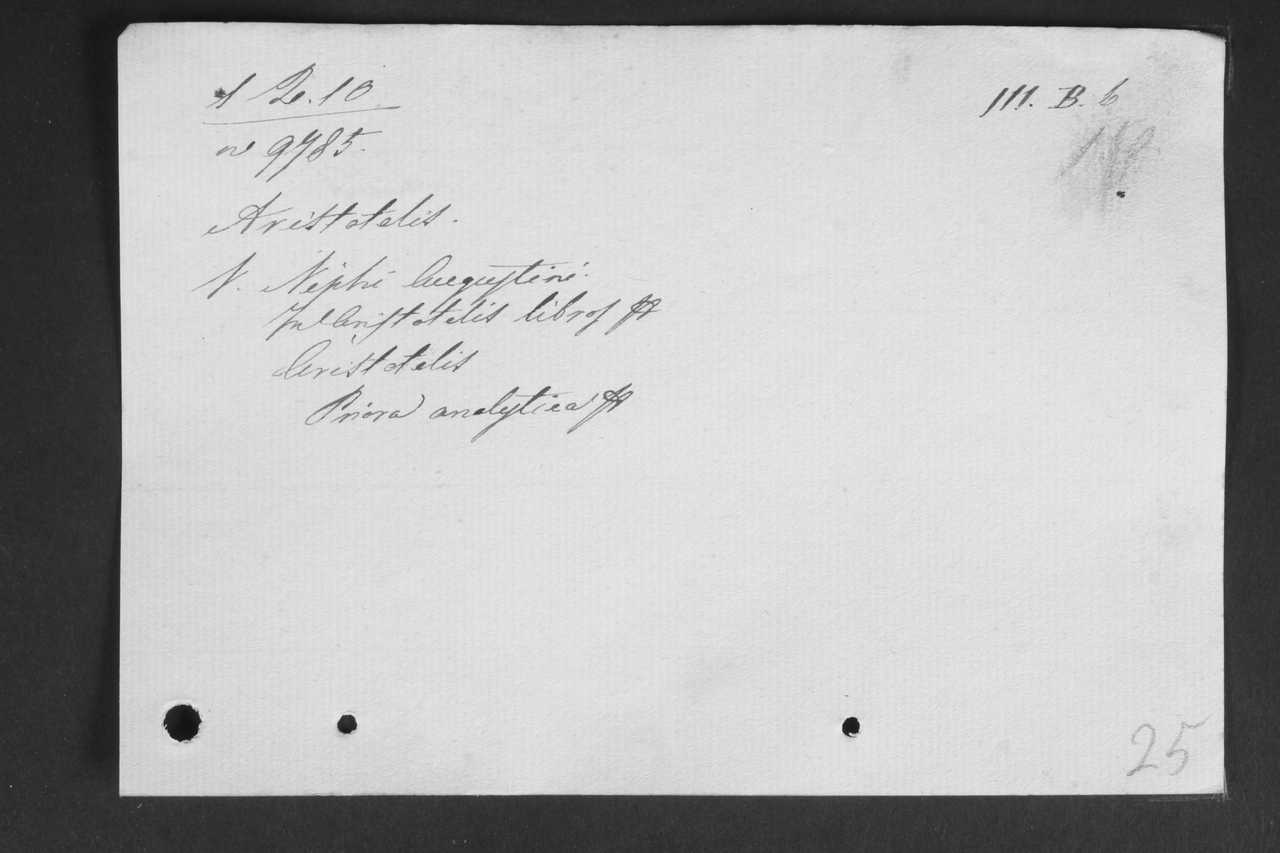 III. B. 6
nº 9785.
Aristotelis.
V. Niphi Augustini.
In Aristotelis libros
Aristotelis
Priora analytica
25